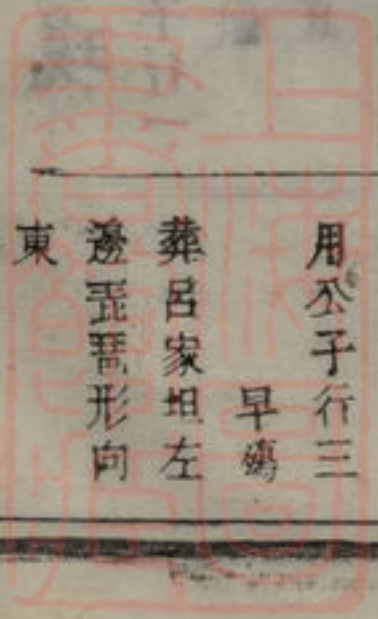 用公子行三
早殤
葬呂家坦左
邊琵琶形向
東